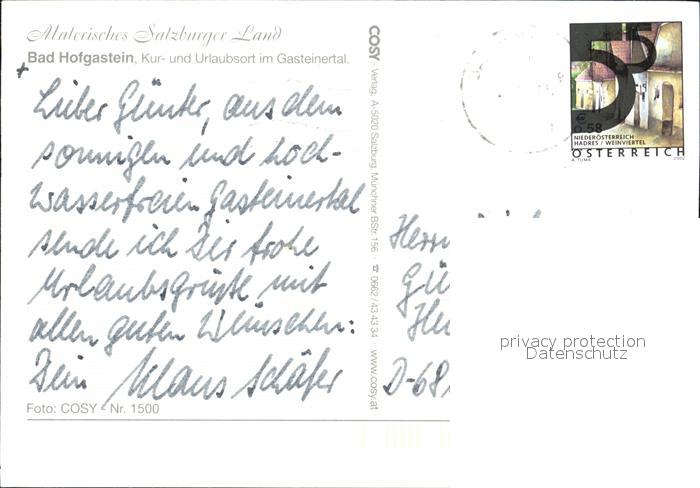 Malerisches Salzburger Land
Bad Hofgastein, Kur- und Urlaubsort im Gasteinertal.
Lieber Günter, aus dem
sonnigen und hoch-
wasserfreien Gasteinertal
sende ich Dir frohe
Urlaubsgrüße mit
allen guten Wünschen:
Dein Klaus Schäfer
Foto: COSY - Nr. 1500
COSY Verlag, A-5020 Salzburg, Münchner BStr. 156 · ☎ 0662/43 43 34 · www.cosy.at
€ 0.58
NIEDERÖSTERREICH
HADRES / WEINVIERTEL
ÖSTERREICH
A. TUMA 2002
Herrn
Gü
D-68
privacy protection
Datenschutz